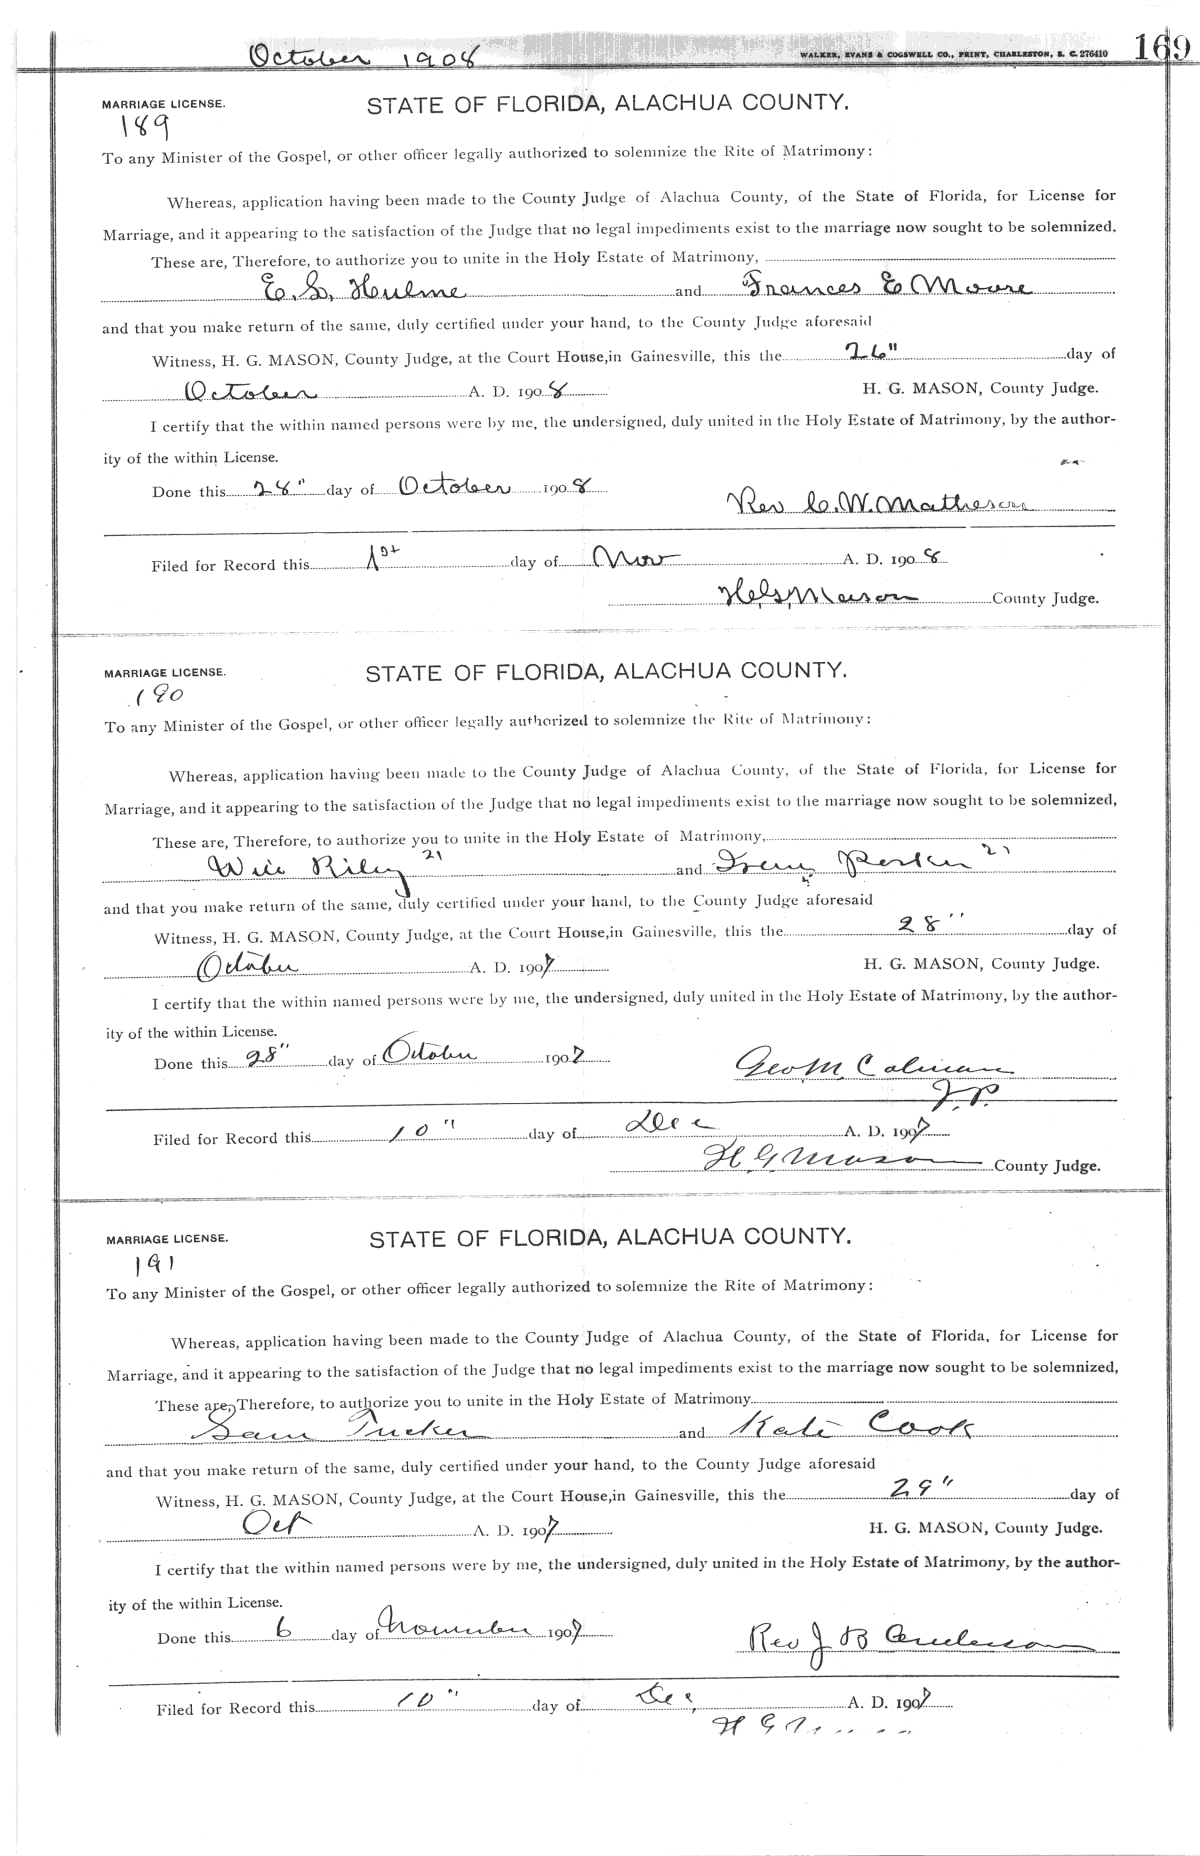 October 1908
WALKER, EVANS & COGSWELL CO., PRINT, CHARLESTON, S. C. 276410
169
MARRIAGE LICENSE.
STATE OF FLORIDA, ALACHUA COUNTY.
189
To any Minister of the Gospel, or other officer legally authorized to solemnize the Rite of Matrimony:
Whereas, application having been made to the County Judge of Alachua County, of the State of Florida, for License for
Marriage, and it appearing to the satisfaction of the Judge that no legal impediments exist to the marriage now sought to be solemnized.
These are, Therefore, to authorize you to unite in the Holy Estate of Matrimony,
E. S. Hulme and Frances E Moore
and that you make return of the same, duly certified under your hand, to the County Judge aforesaid
Witness, H. G. MASON, County Judge, at the Court House, in Gainesville, this the 26" day of
October A. D. 1908 H. G. MASON, County Judge.
I certify that the within named persons were by me, the undersigned, duly united in the Holy Estate of Matrimony, by the author-
ity of the within License.
Done this 28" day of October 1908
Rev C. W. Matheson
Filed for Record this 1st day of Nov A. D. 1908
H. G. Mason County Judge.
MARRIAGE LICENSE.
STATE OF FLORIDA, ALACHUA COUNTY.
190
To any Minister of the Gospel, or other officer legally authorized to solemnize the Rite of Matrimony:
Whereas, application having been made to the County Judge of Alachua County, of the State of Florida, for License for
Marriage, and it appearing to the satisfaction of the Judge that no legal impediments exist to the marriage now sought to be solemnized,
These are, Therefore, to authorize you to unite in the Holy Estate of Matrimony,
Will Riley 21 and 21
and that you make return of the same, duly certified under your hand, to the County Judge aforesaid
Witness, H. G. MASON, County Judge, at the Court House, in Gainesville, this the 28" day of
October A. D. 1907 H. G. MASON, County Judge.
I certify that the within named persons were by me, the undersigned, duly united in the Holy Estate of Matrimony, by the author-
ity of the within License.
Done this 28" day of October 1907
Geo M. Colman
J. P.
Filed for Record this 10" day of Dec A. D. 1907
H. G. Mason County Judge.
MARRIAGE LICENSE.
STATE OF FLORIDA, ALACHUA COUNTY.
191
To any Minister of the Gospel, or other officer legally authorized to solemnize the Rite of Matrimony:
Whereas, application having been made to the County Judge of Alachua County, of the State of Florida, for License for
Marriage, and it appearing to the satisfaction of the Judge that no legal impediments exist to the marriage now sought to be solemnized,
These are, Therefore, to authorize you to unite in the Holy Estate of Matrimony
Sam Tucker and Kate Cook
and that you make return of the same, duly certified under your hand, to the County Judge aforesaid
Witness, H. G. MASON, County Judge, at the Court House, in Gainesville, this the 29" day of
Oct A. D. 1907 H. G. MASON, County Judge.
I certify that the within named persons were by me, the undersigned, duly united in the Holy Estate of Matrimony, by the author-
ity of the within License.
Done this 6 day of November 1907
Rev J B Anderson
Filed for Record this 10" day of Dec, A. D. 1907
H G